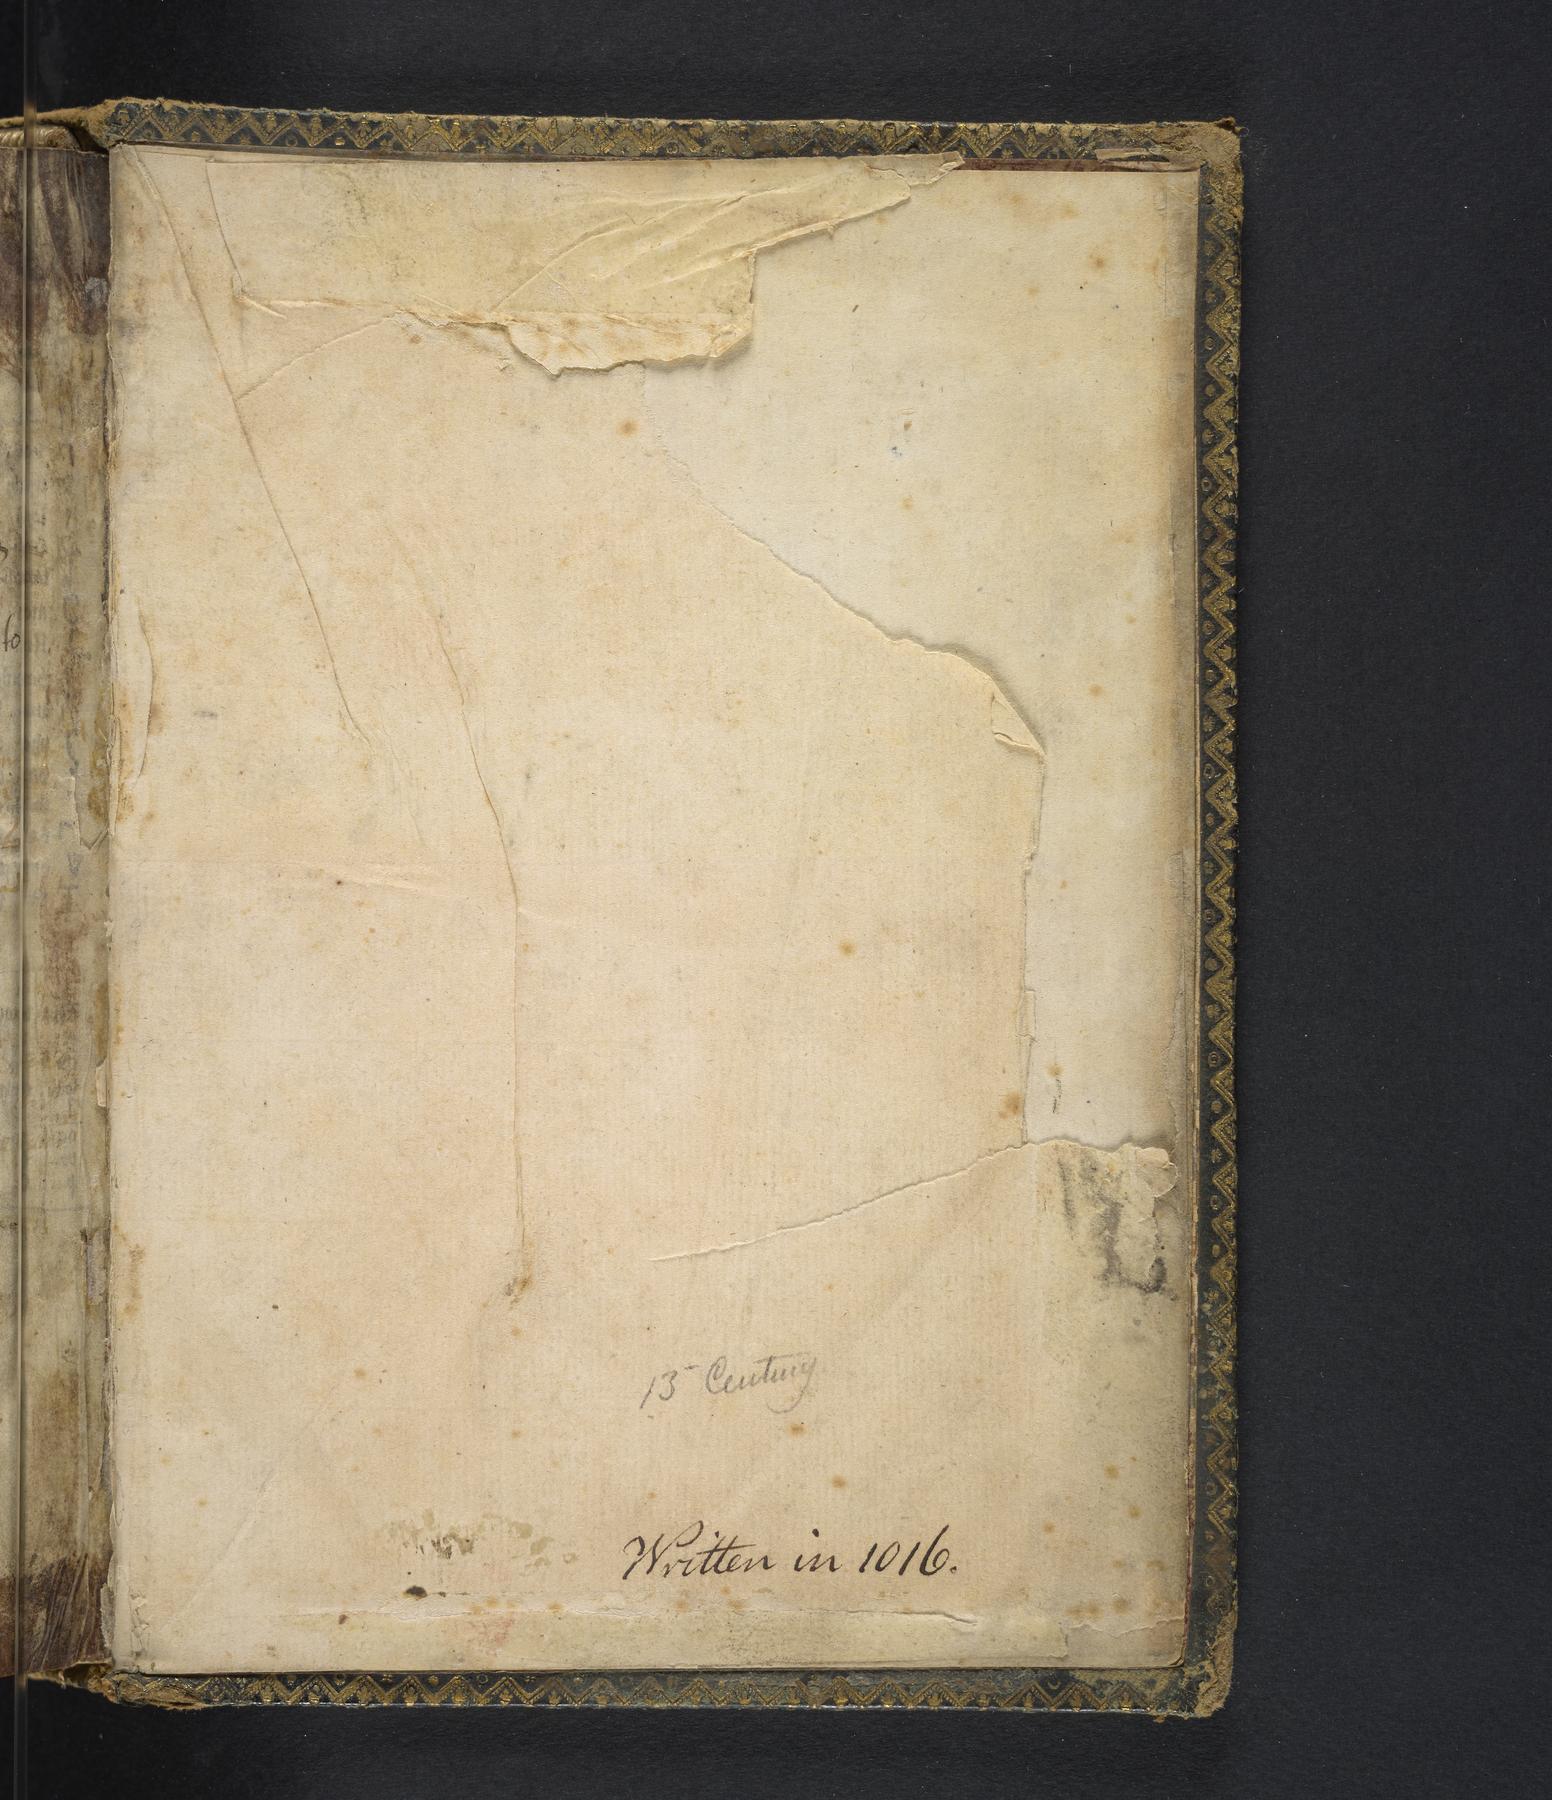 13 Century
Written in 1016.